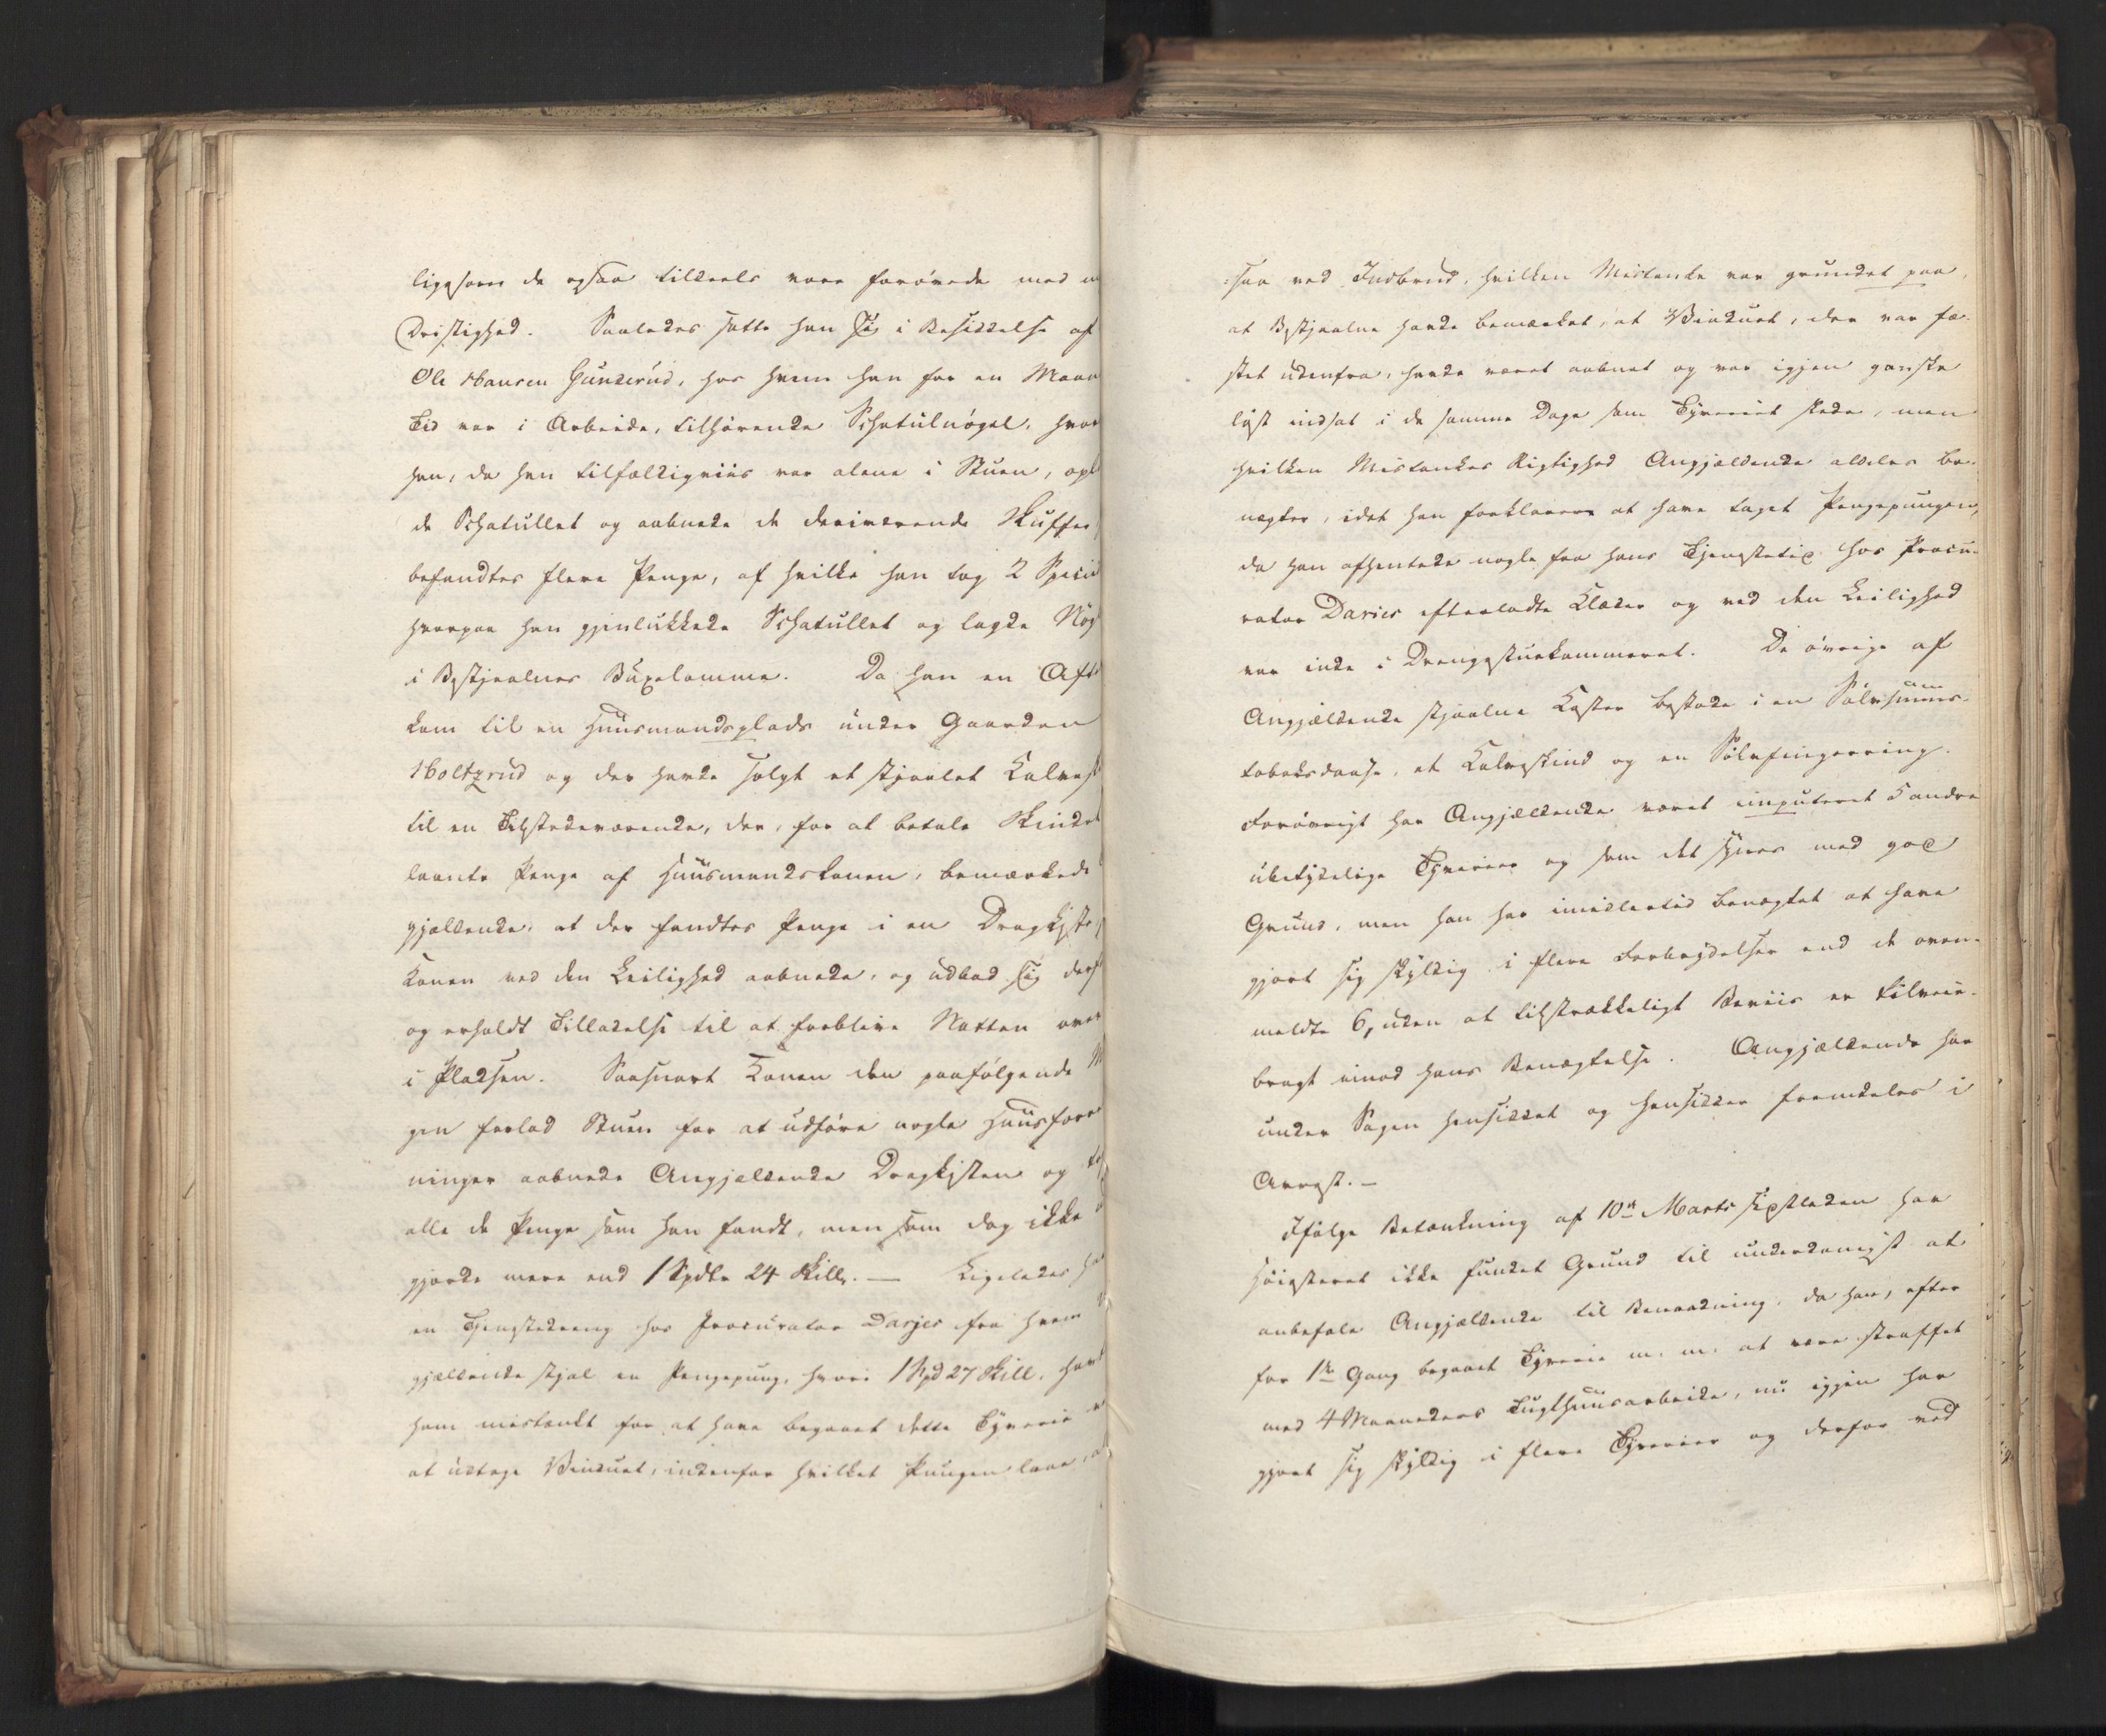 ligesom de ogsaa tildeels vare forøvede med
Dristighed. Saaledes satte han sig i Besiddelse af
Ole Hansen Gunderud, hos hvem han for en Maan
Tid var i Arbeide, tilhørende Schatulnøgel, hvor
han, da han tilfældigviis var alene i Stuen, opl
de Schatullet og aabnede de deriværende Skuffer
befandtes flere Penge, af hvilke han tog 2 Specie
hvorpaa han gjenlukkede Schatullet og lagde Nøg
i Bestjaalnes Buxelomme. Da han en Aft
kom til en Huusmandsplads under Gaarden
Holtzrud og der havde solgt et stjaalet Kalves
til en Tilstedeværende, der, for at betale Skindet
laante Penge af Huusmandskonen, bemærkede
gjældende, at der fandtes Penge i en Dragkiste,
Konen ved den Leilighed aabnede, og udbad sig derf
og erholdt Tilladelse til at forblive Natten over
i Pladsen. Saasnart Konen den paafølgende M
gen forlod Stuen for at udføre nogle Huusforr
ninger aabnede Angjældende Dragkisten og to
alle de Penge som han fandt, men som dog ikke
gjorde mere end 1 Spdlr 24 Skill. — Ligeledes ha
en Tjenestedreng hos Procurator Darjes fra hvem
gjældende stjal en Pengepung, hvori 1 Spd 27 Skill. hav
ham mistænkt for at have begaaet dette Tyverie
at udtage Vinduet, indenfor hvilket Pungen laae,
saa ved Indbrud, hvilken Mistanke var grundet paa,
at Bestjaalne havde bemærket, at Vinduet, der var fæ-
stet udenfra, havde været aabnet og var igjen ganske
løst indsat i de samme Dage som Tyveriet skede, men
hvilken Mistankes Rigtighed Angjældende aldeles be-
nægter, idet han forklarer at have taget Pengepungen,
da han afhentede nogle fra hans Tjenestetid hos Procu-
rator Daries efterladte Klæder og ved den Leilighed
var inde i Drengestuekammeret. De øvrige af
Angjældende stjaalne Koster bestode i en Sølvsnuus-
tobaksdaase, et Kalveskind og en Sølvfingerring.
Forøvrigt har Angjældende været imputeret 5 andre
ubetydelige Tyverier og som det synes med god
Grund, men han har imidlertid benægtet at have
gjort sig skyldig i flere Forbrydelser end de oven-
meldte 6, uden at tilstrækkeligt Beviis er tilveie-
bragt imod hans Benægtelse. Angjældende har
under Sagen hensiddet og hensidder fremdeles i
Arrest. —
Ifølge Betænkning af 10de Marts sidstleden har
Høiesteret ikke fundet Grund til underdanigst at
anbefale Angjældende til Benaadning, da han, efter
for 1ste Gang begaaet Tyverie m. m. at være straffet
med 4 Maaneders Tugthuusarbeide, nu igjen har
gjort sig skyldig i flere Tyverier og derfor ved